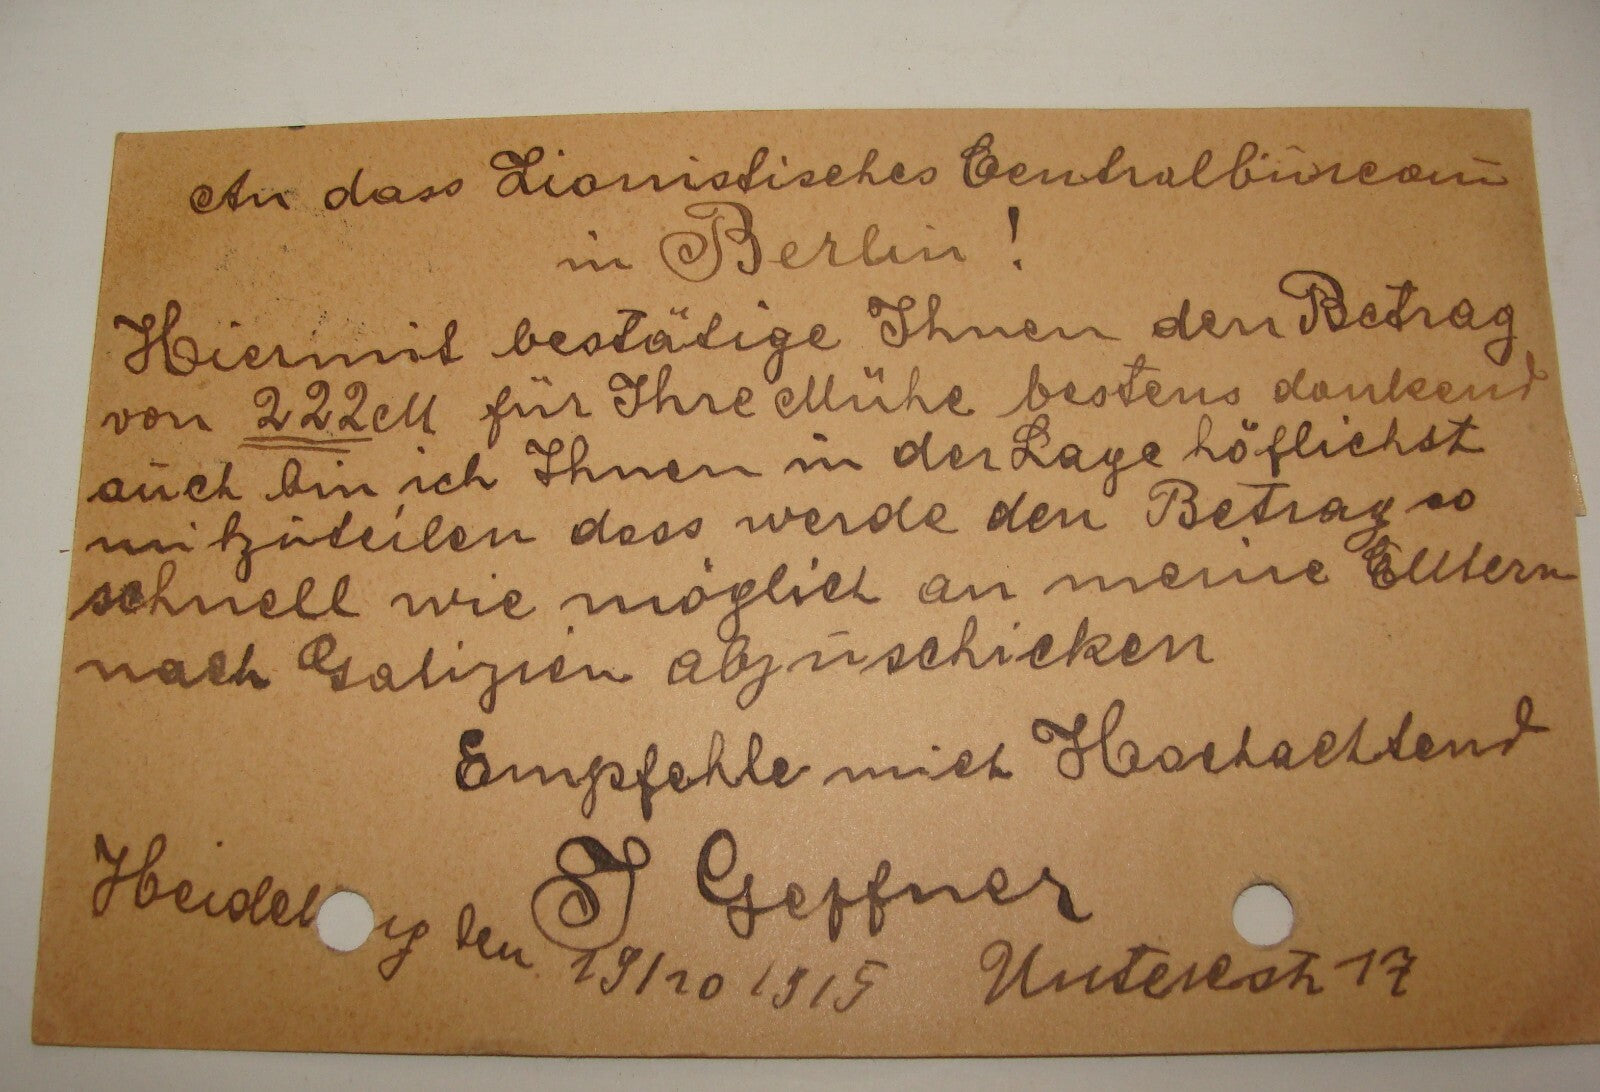 An dass Zionistisches Centralbüreau
in Berlin!
Hiermit bestätige Ihnen den Betrag
von 222 M für Ihre Mühe bestens dankend
auch bin ich Ihnen in der Lage höflichst
mitzuteilen dass werde den Betrag so
schnell wie möglich an meine Elltern
nach Galizien abzuschicken
Empfehle mich Hochachtend
J Geffner
Heidel g den 19/10 1915 Unterestr 17